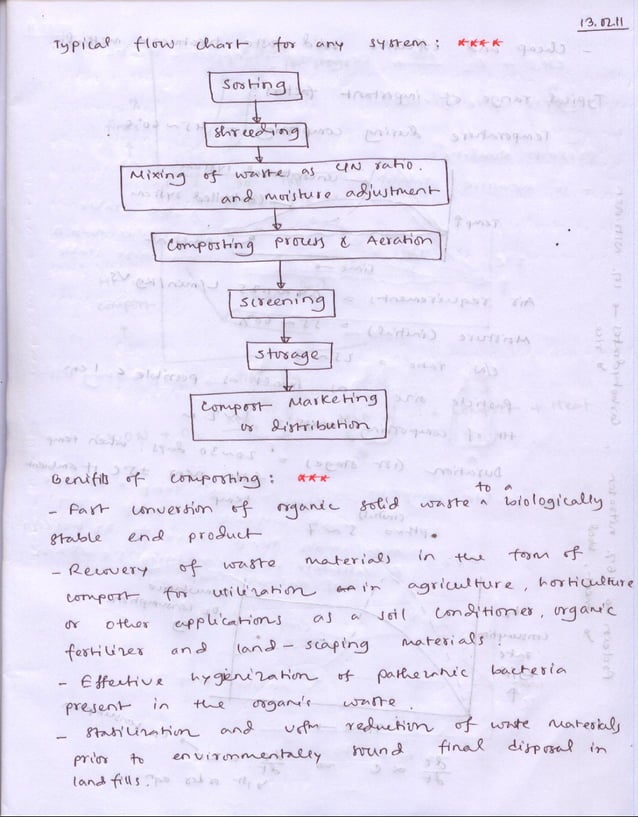 13.02.11
Typical flow chart for any system: ****
Sosting
shreeding
Mixing of waste as C/N ratio.
and moisture adjustment
Composting process & Aeration
screening
storage
Compost Marketing
or distribution
Benifits of composting: ***
- Fast conversion of organic solid waste to a biologically
stable end product
- Recovery of waste materials in the form of
compost for utilization in agriculture, horticulture
or other applications as a soil conditioner, organic
fertilizer and land-scaping materials.
- Effective hygienization of pathennic bacteria
present in the organic waste.
- Stabilization and volm reduction of waste materials
prior to environmentally sound final disposal in
landfills.